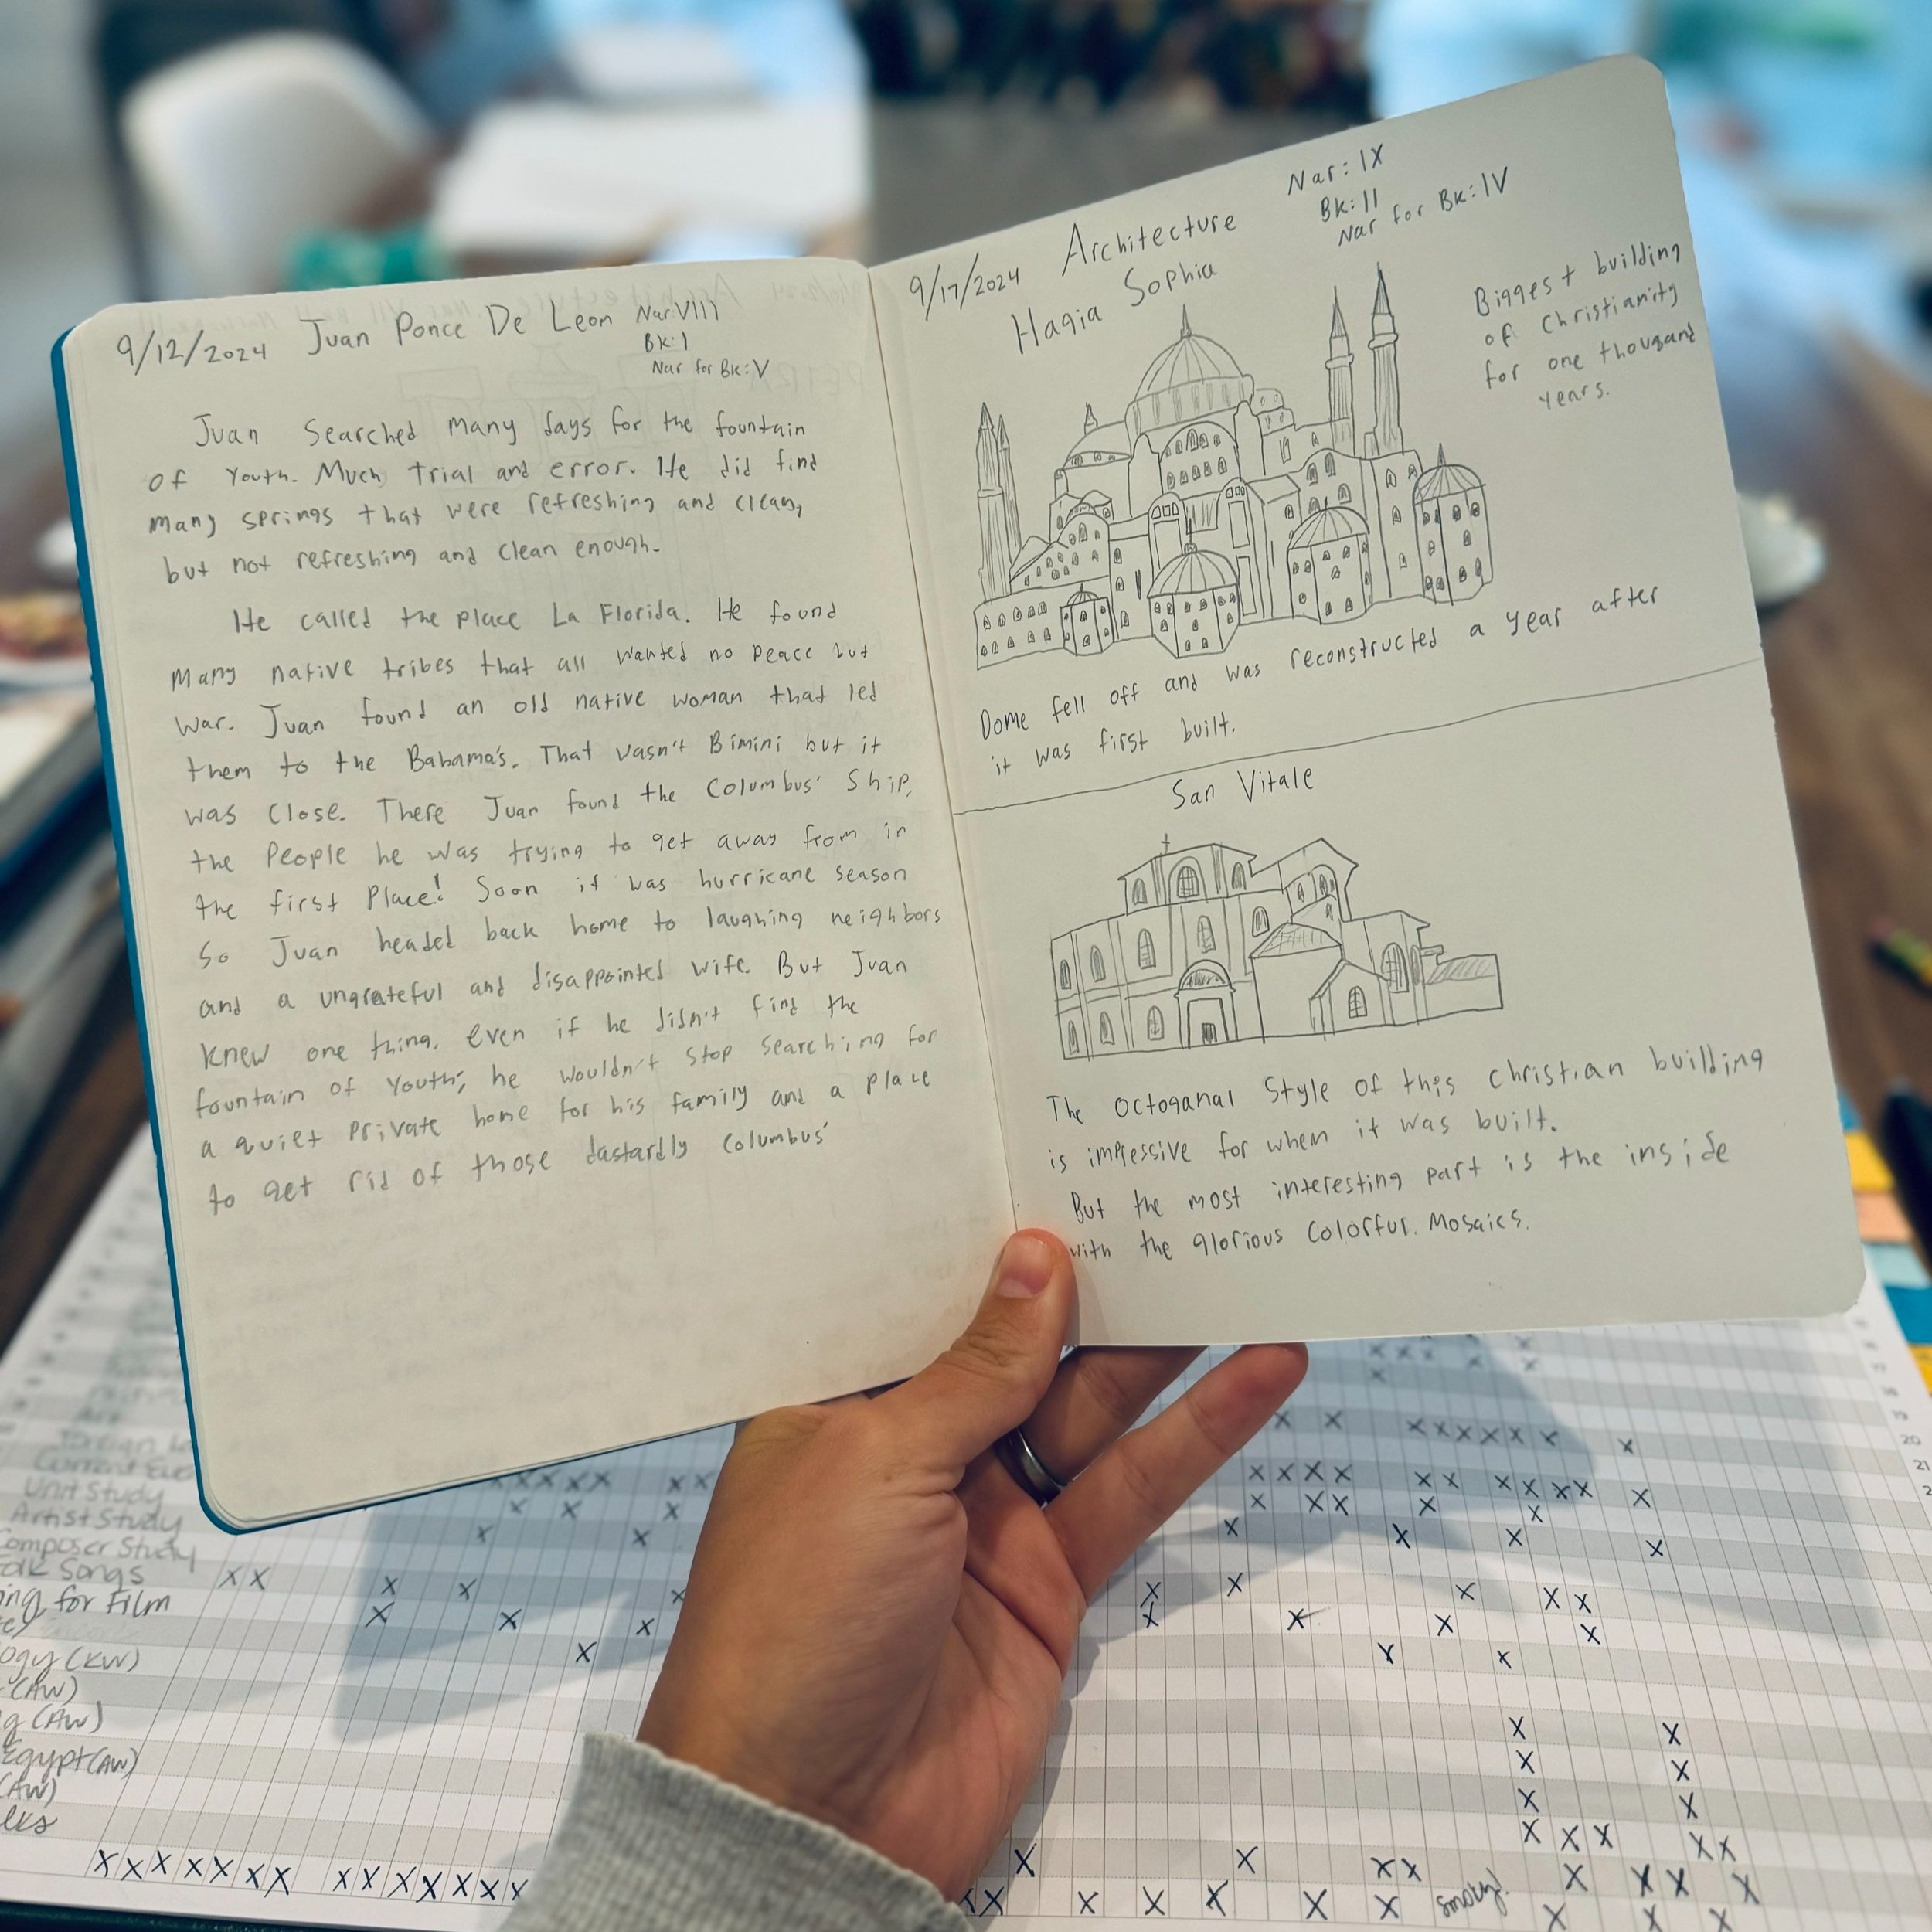 9/12/2024 Juan Ponce De Leon Nar:VIII
Bk:I
Nar for Bk:V
Juan Searched many days for the fountain
of Youth. Much trial and error. He did find
many springs that were refreshing and clean,
but not refreshing and clean enough.
He called the place La Florida. He found
many native tribes that all wanted no peace but
war. Juan found an old native woman that led
them to the Bahama's. That wasn't Bimini but it
was close. There Juan found the Columbus' ship,
the people he was trying to get away from in
the first Place! Soon it was hurricane season
So Juan headed back home to laughing neighbors
and a ungrateful and disappointed wife. But Juan
knew one thing, even if he didn't find the
fountain of Youth; he wouldn't stop searching for
a quiet private home for his family and a place
to get rid of those dastardly Columbus'
9/17/2024 Architecture
Nar: IX
Bk: II
Nar for Bk: IV
Hagia Sophia
Biggest building
of Christianity
for one thousand
years.
Dome fell off and was reconstructed a year after
it was first built.
San Vitale
The Octoganal Style of this Christian building
is impressive for when it was built.
But the most interesting part is the inside
with the glorious colorful. Mosaics.
19
20
21
Unit Study
Artist Study
Composer Study
Folk Songs
for Film
(KW)
(AW)
(AW)
Egypt (AW)
(AW)
smoky!